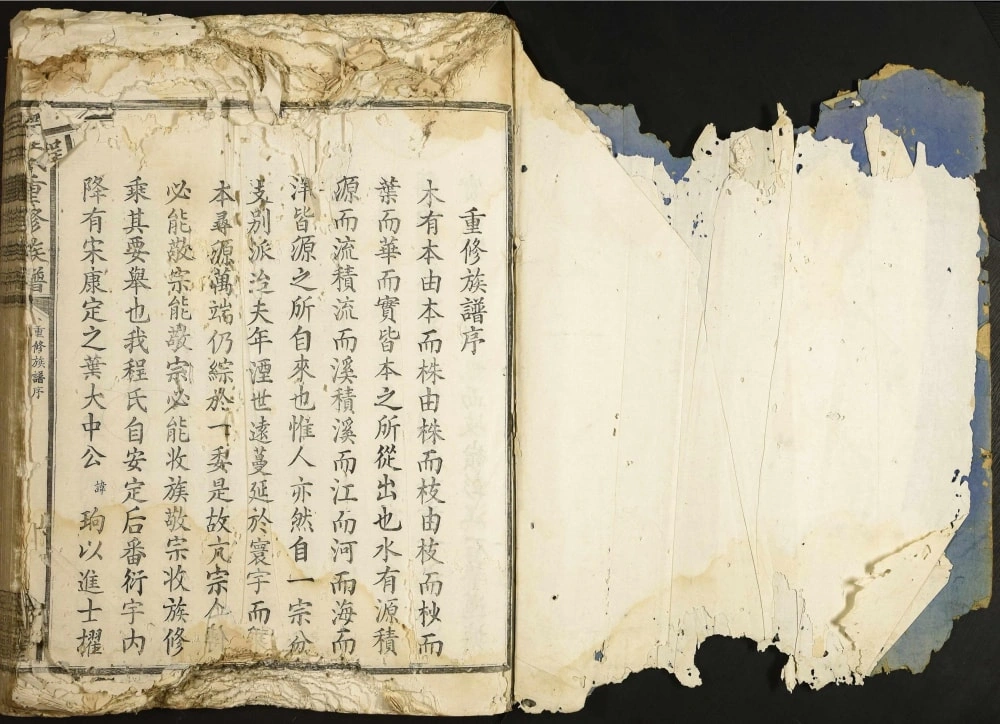 重修族譜序
木有本由本而株由株而枝由枝而杪而
葉而華而實皆本之所從出也水有源積
源而流積流而溪積溪而江而河而海而
洋皆源之所自來也惟人亦然自一宗分
支别派迨夫年湮世遠蔓延於寰宇而
本尋源萬端仍綜於一委是故亢宗
必能敬宗能敬宗必能收族敬宗收族修
乘其要舉也我程氏自安定后番衍宇内
降有宋康定之葉大中公諱珦以進士擢
程氏重修族譜
重修族譜序